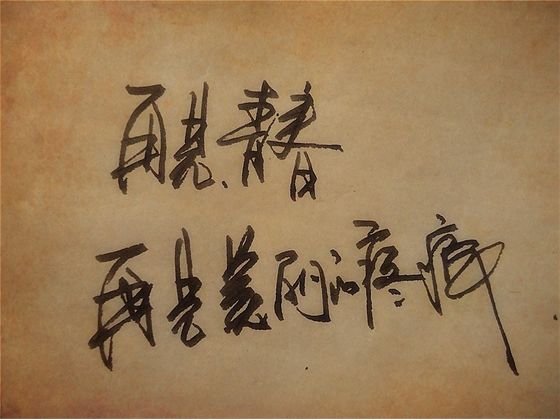 再见青春
再见美丽的疼痛